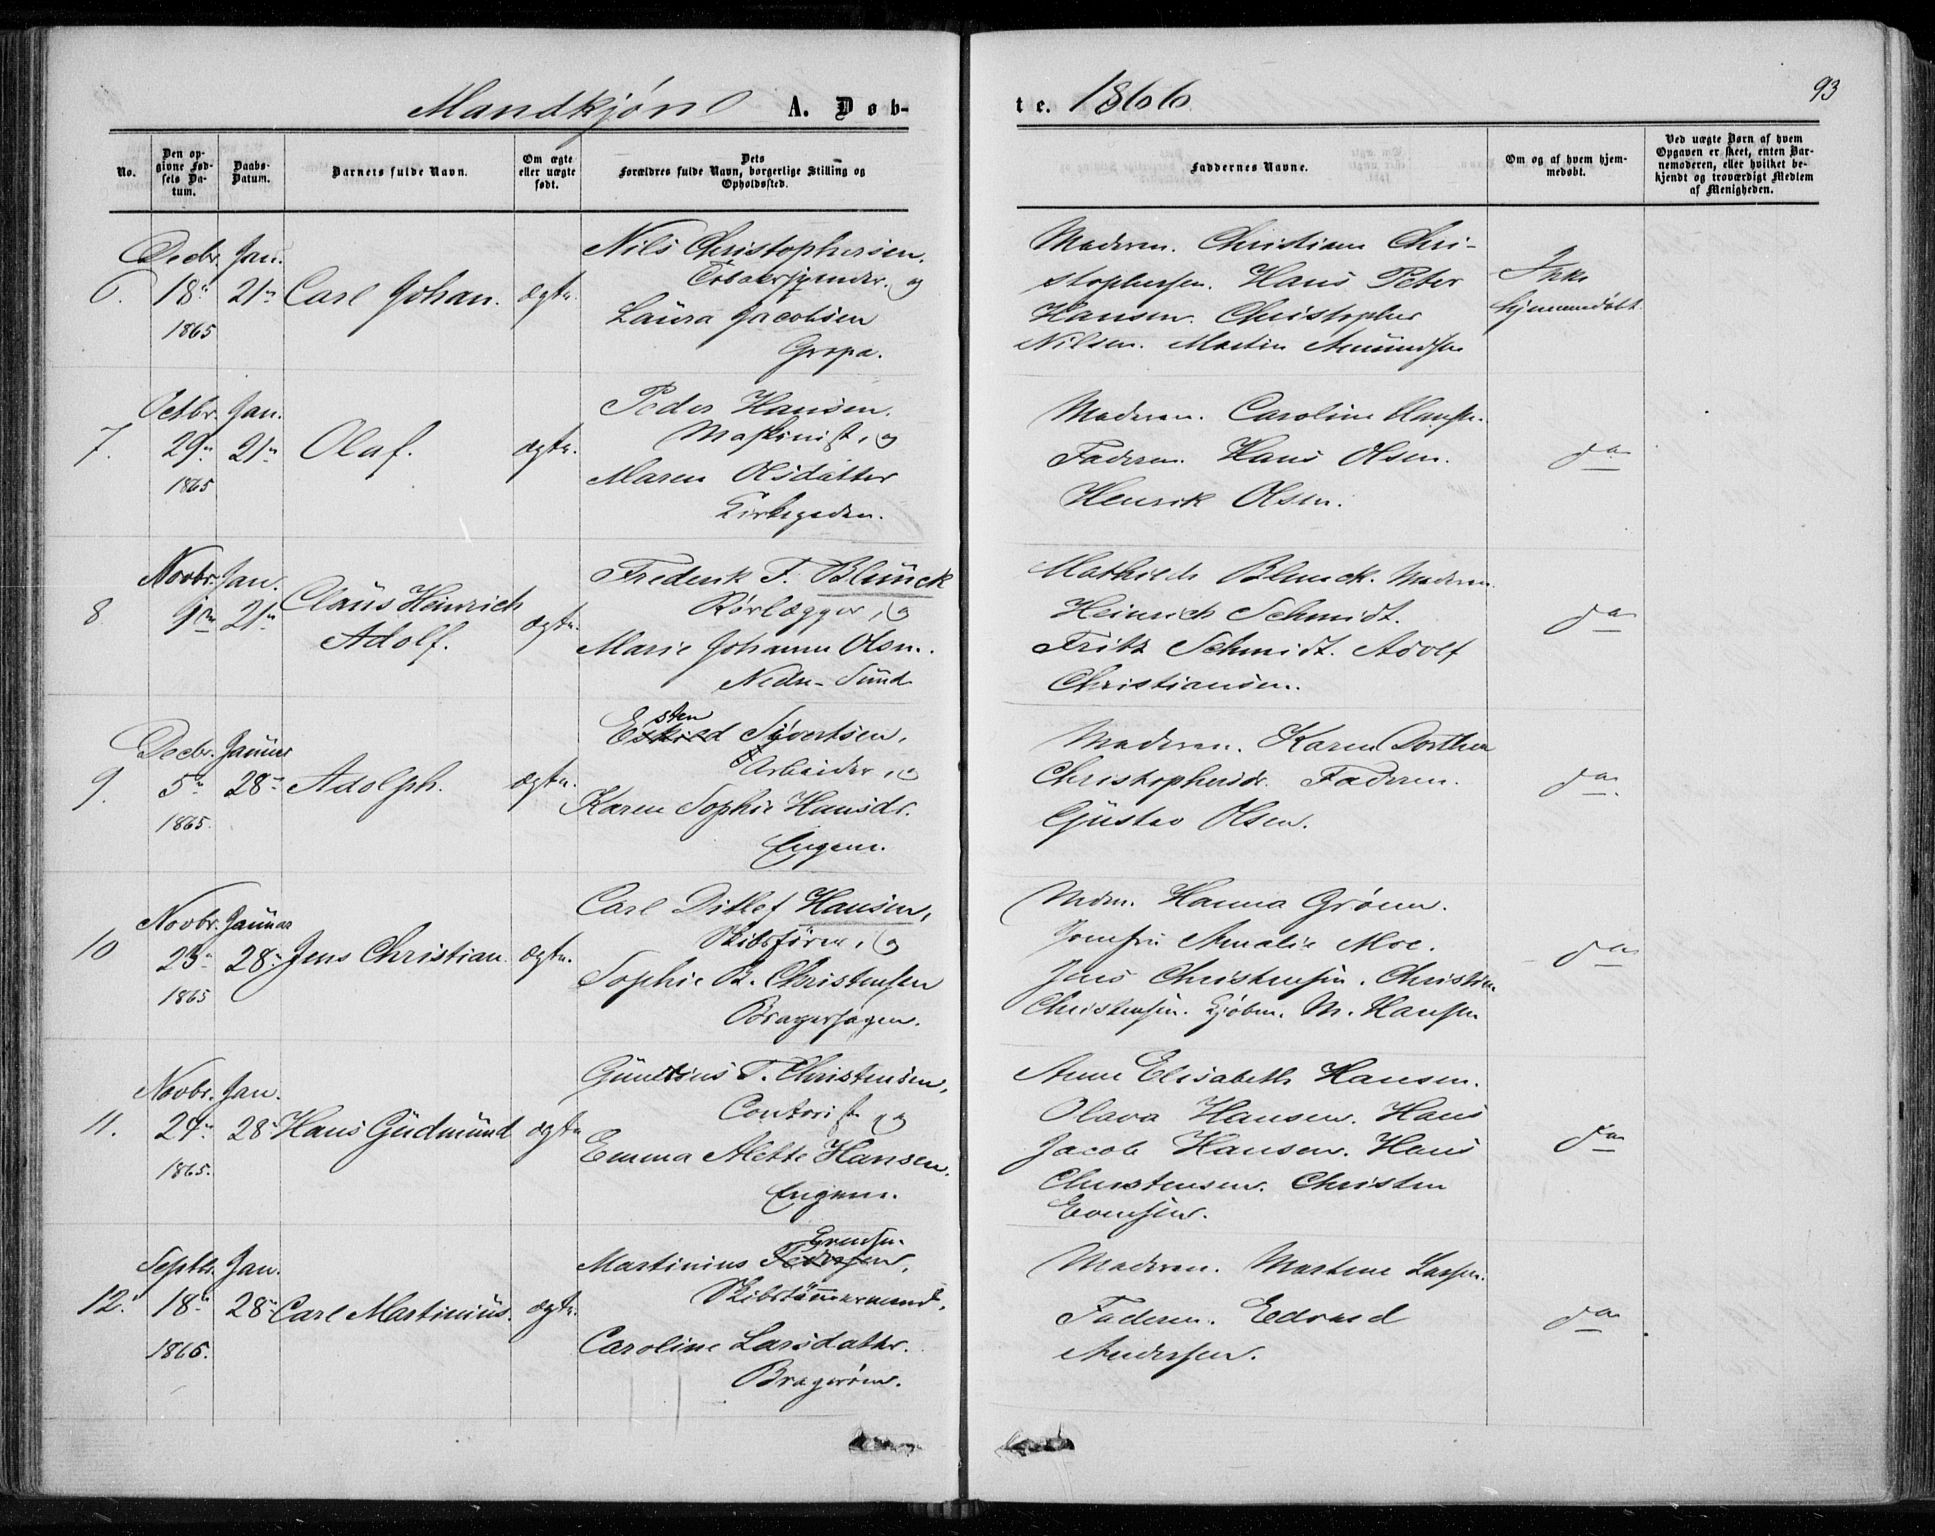 Mandkjøn A. Døb-
te. 1866
93
No.
Den op-
givne Fød-
sels Da-
tum.
Daabs-
Datum.
Barnets fulde Navn.
Om ægte
eller uægte
født.
Dets
Forældres fulde Navn, borgerlige Stilling og
Opholdssted.
Faddernes Navne.
Om og af hvem hjem-
medøbt.
Ved uægte Børn af hvem
Opgaven er skeet, enten Bar-
nemoderen, eller hvilket be-
kjendt og troværdigt Medlem
af Menigheden.
6. Decbr. 18de 1865
Jan. 21de
Carl Johan.
ægte.
Nils Christophersen.
Tobakspinder, og
Laura Jacobsen
Gropa.
Moderen. Christiane Chri-
stophersen. Hans Peter
Hansen. Christopher
Nilsen. Martin Amundsen
Ikke
hjemmedøbt.
7. Octbr. 29de 1865
Jan. 21de
Olaf.
ægte.
Peder Hansen.
Maskinist, og
Maren Olsdatter
Kirkegaden.
Moderen. Caroline Hansen.
Faderen. Hans Olsen.
Henrik Olsen.
do
8 Novbr. 9de
Jan. 21de
Claus Heinrich
Adolf.
ægte.
Frederik F. Blunck
Rørlægger, og
Marie Johanne Olsen.
Nedre-Sund
Mathilde Blunck. Moderen
Heinrich Schmidt.
Fritz Schmidt. Adolf
Christiansen.
do
9. Decbr. 5te 1865.
Januar 28de
Adolph.
ægte.
sten
Eskild Syvertsen,
Arbeider, og
Karen Sophie Hansdr.
Engene.
Moderen. Karen Dorthea
Christophersdr. Faderen.
Gustav Olsen.
do
10 Novbr. 23de 1865
Januar 28de
Jens Christian.
ægte.
Carl Ditlef Hansen,
Skibsfører, og
Sophie B. Christensen
Bragerhagen.
Mdm. Hanna Grønn.
Jomfru Amalie Moe.
Jens Christensen. Christian
Christensen. Kjøbm. M. Hansen
do
11. Novbr. 27de 1865.
Jan. 28de
Hans Gudmund
ægte
T. Christensen,
Contorist, og
Emma Alette Hansen.
Engene.
Anne Elisabeth Hansen.
Olava Hansen. Hans
Jacob Hansen. Hans
Christensen. Christen
Evensen.
do
12. Septbr. 18de 1865.
Jan. 28de
Carl Martinius.
ægte.
Evensen.
Martinius Pedersen,
Skibstømmermand,
Caroline Larsdatter.
Bragerøen.
Moderen. Martine Larsen.
Faderen. Edvard
Andersen.
do